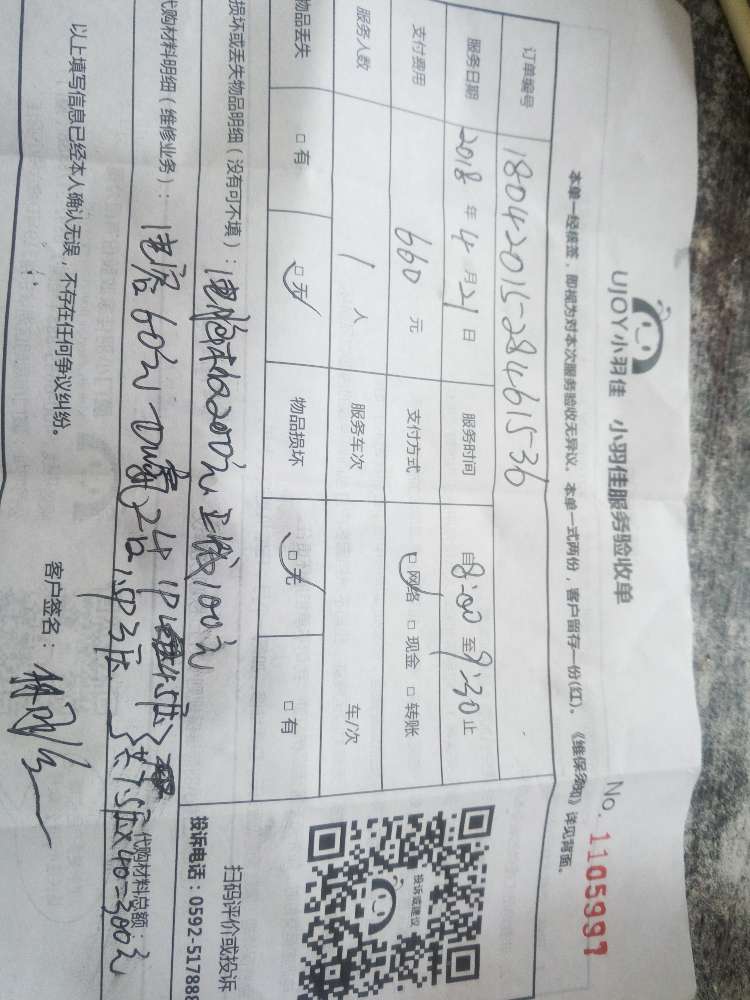 UJOY小羽佳 小羽佳服务验收单
No. 1105997
本单一经接签，即视为对本次服务验收无异议。本单一式两份，客户留存一份(红)。《维保须知》详见背面。
订单编号 18042015-284615-36
服务日期 2018 年 4 月 21 日 服务时间 自 8:00 至 9:30 止
支付费用 660 元 支付方式 □网络 □现金 □转账
服务人数 1 人 服务车次 车/次
物品丢失 □有 □无 物品损坏 □无 □有
损坏或丢失物品明细（没有可不填）：
200元 100元
代购材料明细（维修业务）：
60元
代购材料总额：
300元
以上填写信息已经本人确认无误，不存在任何争议纠纷。
客户签名：
投诉或建议
扫码评价或投诉
投诉电话：0592-517888